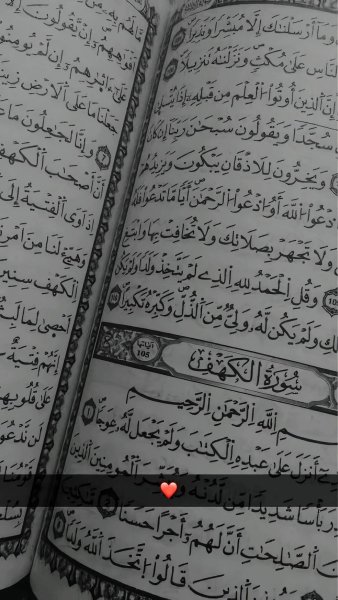 وَمَآ أَرْسَلْنَٰكَ إِلَّا مُبَشِّرًا وَنَذِيرًا
النَّاسِ عَلَىٰ مُكْثٍ وَنَزَّلْنَٰهُ تَنزِيلًا
إِنَّ الَّذِينَ أُوتُوا۟ الْعِلْمَ مِن قَبْلِهِ إِذَا يُتْلَىٰ
سُجَّدًا وَيَقُولُونَ سُبْحَٰنَ رَبِّنَا إِن كَانَ
وَيَخِرُّونَ لِلْأَذْقَانِ يَبْكُونَ وَيَزِيدُهُمْ
ادْعُوا۟ اللَّهَ أَوُ ادْعُوا۟ الرَّحْمَٰنَ أَيًّا مَّا تَدْعُوا۟ فَلَهُ
وَلَا تَجْهَرْ بِصَلَاتِكَ وَلَا تُخَافِتْ بِهَا وَابْتَغِ
وَقُلِ الْحَمْدُ لِلهِ الَّذِي لَمْ يَتَّخِذْ وَلَدًا وَلَمْ يَكُن
وَلَمْ يَكُن لَّهُ وَلِيٌّ مِّنَ الذُّلِّ وَكَبِّرْهُ تَكْبِيرًا
سُورَةُ الْكَهْفِ آياتها 105
اللَّهِ الرَّحْمَٰنِ الرَّحِيمِ
أَنزَلَ عَلَىٰ عَبْدِهِ الْكِتَٰبَ وَلَمْ يَجْعَل لَّهُ عِوَجًا
بَأْسًا شَدِيدًا مِّن لَّدُنْهُ وَيُبَشِّرَ الْمُؤْمِنِينَ الَّذِينَ
الصَّٰلِحَٰتِ أَنَّ لَهُمْ أَجْرًا حَسَنًا
الَّذِينَ قَالُوا۟ اتَّخَذَ اللَّهُ وَلَدًا
إِنْ يَقُولُونَ إِلَّا
عَلَىٰ ءَاثَٰرِهِمْ إِن لَّمْ يُومِنُوا۟
جَعَلْنَا مَا عَلَى الْأَرْضِ زِينَةً
وَإِنَّا لَجَٰعِلُونَ مَا
أَنَّ أَصْحَٰبَ الْكَهْفِ
إِذَ اوَى الْفِتْيَةُ إِلَى
وَهَيِّئْ لَنَا مِنْ أَمْرِنَا
الْكَهْفِ سِنِينَ
أَحْصَىٰ لِمَا لَبِثُوا۟
إِنَّهُمْ فِتْيَةٌ
عَلَىٰ قُلُوبِهِمْ
لَن نَّدْعُوَا۟